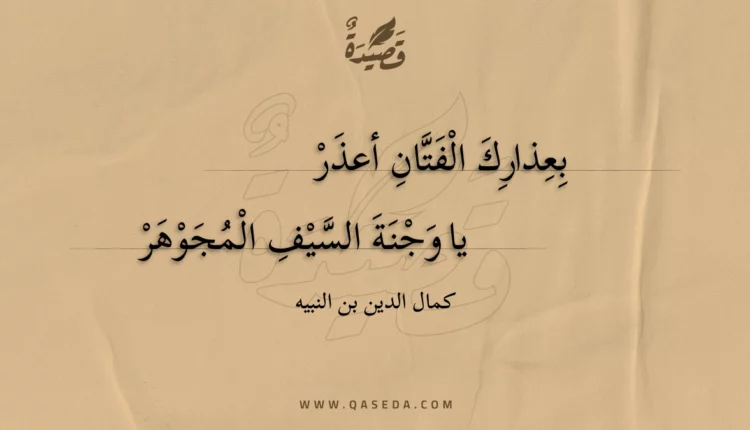 قَصِيْدَةٌ
بِعِذارِكَ الْفَتَّانِ أعذَرْ
يا وَجْنَةَ السَّيْفِ الْمُجَوْهَرْ
كمال الدين بن النبيه
WWW.QASEDA.COM